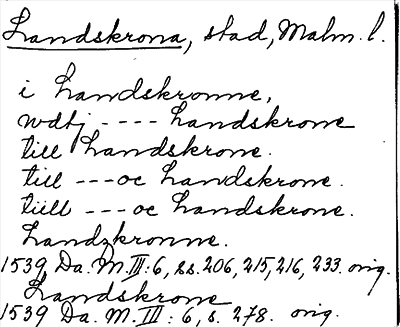 Landskrona, stad, Malm. l.
i Landskronne,
wdtj ---- Landskrone
till Landskrone.
till --- oc Landskrone.
tiill --- oc Landskrone.
Landzkronne.
1539, Da. M. III: 6, ss. 206, 215, 216, 233. orig.
Landskrone
1539 Da. M. III: 6, s. 278. orig.